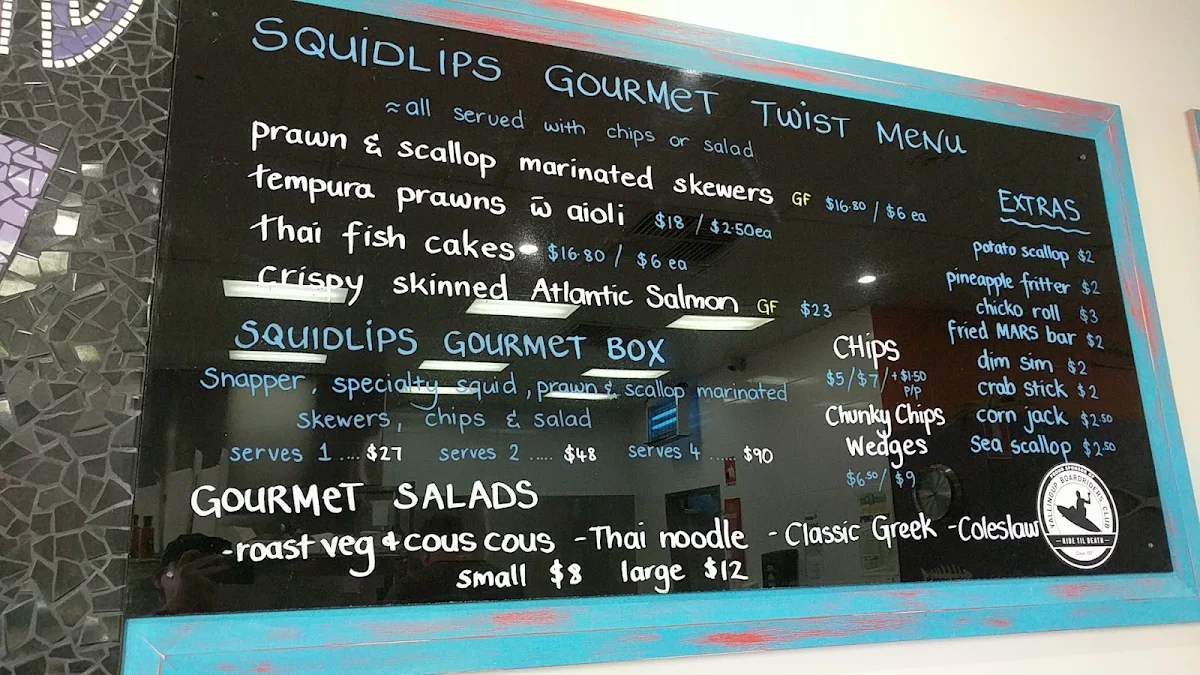 SQUIDLIPS GOURMET TWIST MENU
≈all served with chips or salad
prawn & scallop marinated skewers GF $16·80 / $6 ea
tempura prawns w̄ aioli $18 / $2·50ea
Thai fish cakes $16·80 / $6 ea
Crispy skinned Atlantic Salmon GF $23
SQUIDLIPS GOURMET BOX
Snapper, specialty squid, prawn & scallop marinated
skewers, chips & salad
serves 1 .... $27 serves 2 ..... $48 serves 4 ..... $90
CHips
$5/$7/+$1·50
P/P
Chunky Chips
Wedges
$6·50/ $9
EXTRAS
potato scallop $2
pineapple fritter $2
chicko roll $3
fried MARS bar $2
dim sim $2
crab stick $2
corn jack $2·50
sea scallop $2·50
GOURMET SALADS
-roast veg & cous cous -Thai noodle -Classic Greek -Coleslaw
small $8 large $12
PROUD SPONSOR OF
YALLINGUP BOARDRIDERS CLUB
RIDE TIL DEATH